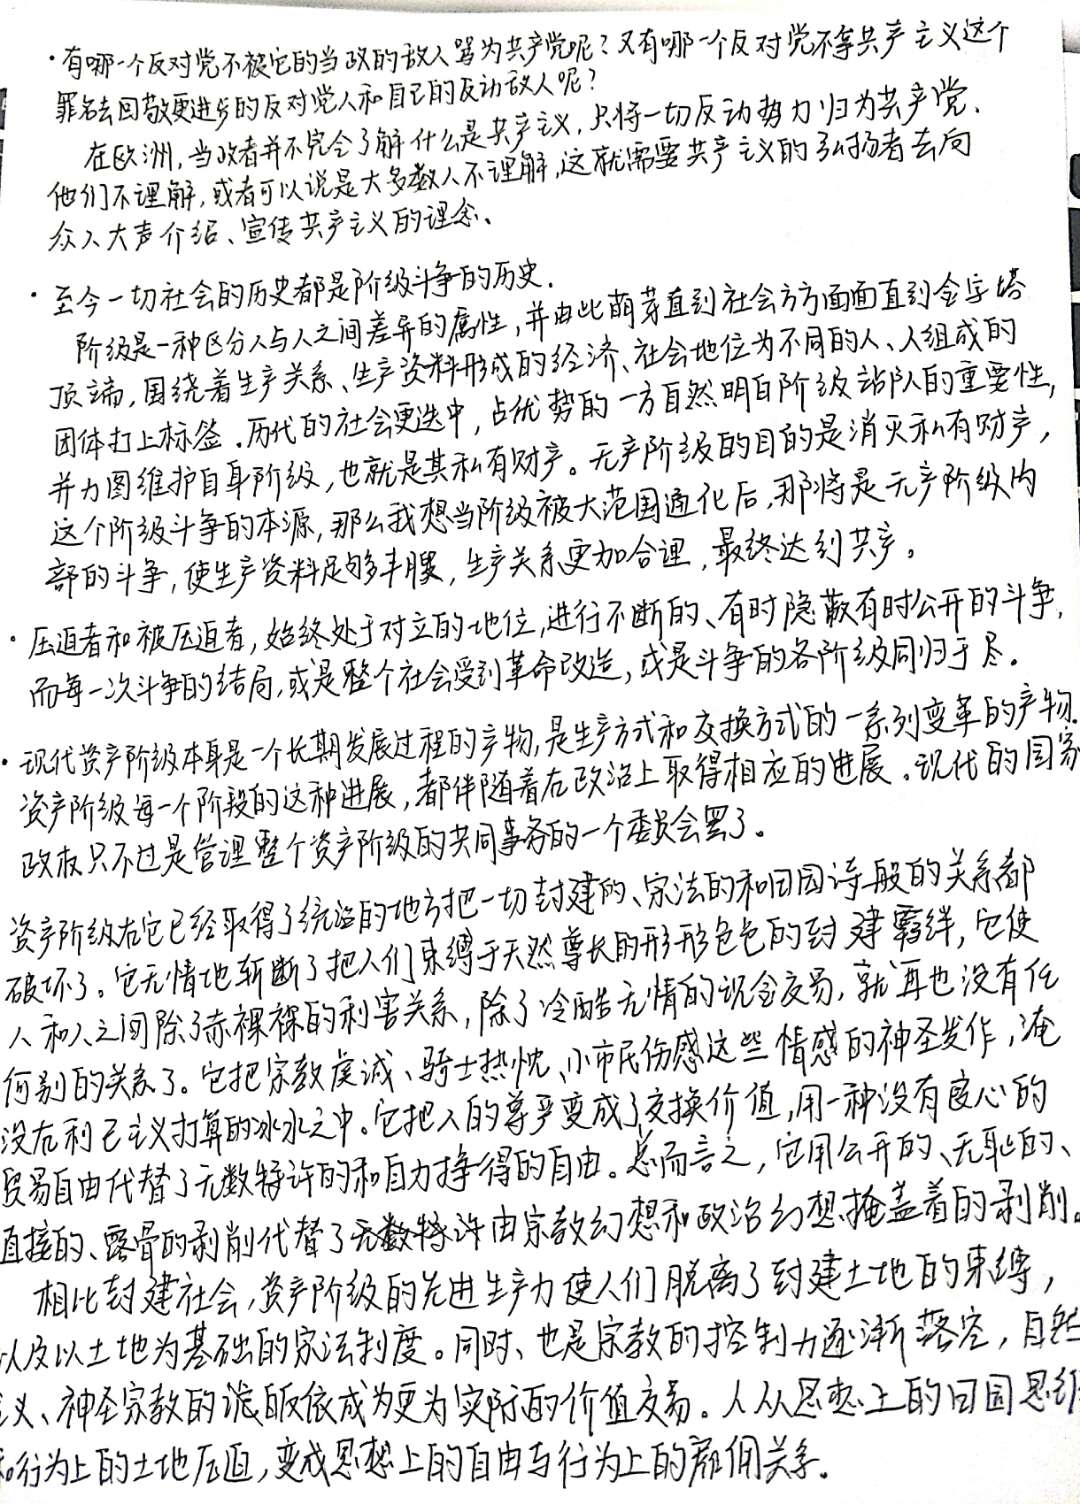 ·有哪一个反对党不被它的当政的敌人骂为共产党呢？又有哪一个反对党不拿共产主义这个
罪名去回敬更进步的反对党人和自己的反动敌人呢？
在欧洲，当政者并不完全了解什么是共产主义，只将一切反动势力归为共产党、
他们不理解，或者可以说是大多数人不理解，这就需要共产主义的弘扬者去向
众人大声介绍、宣传共产主义的理念、
·至今一切社会的历史都是阶级斗争的历史.
阶级是一种区分人与人之间差异的属性，并由此萌芽直到社会方方面面直到金字塔
顶端，围绕着生产关系、生产资料形成的经济、社会地位为不同的人、人组成的
团体打上标签.历代的社会更迭中，占优势的一方自然明白阶级站队的重要性，
并力图维护自身阶级，也就是其私有财产。无产阶级的目的是消灭私有财产，
这个阶级斗争的本源，那么我想当阶级被大范围通化后，那将是无产阶级内
部的斗争，使生产资料足够丰腴，生产关系更加合理，最终达到共产。
·压迫者和被压迫者，始终处于对立的地位，进行不断的、有时隐蔽有时公开的斗争，
而每一次斗争的结局，或是整个社会受到革命改造，或是斗争的各阶级同归于尽。
·现代资产阶级本身是一个长期发展过程的产物，是生产方式和交换方式的一系列变革的产物.
资产阶级每一个阶段的这种进展，都伴随着在政治上取得相应的进展。现代的国家
政权只不过是管理整个资产阶级的共同事务的一个委员会罢了。
资产阶级在它已经取得了统治的地方把一切封建的、宗法的和田园诗般的关系都
破坏了。它无情地斩断了把人们束缚于天然尊长的形形色色的封建羁绊，它使
人和人之间除了赤裸裸的利害关系，除了冷酷无情的现金交易，就再也没有任
何别的关系了。它把宗教虔诚、骑士热忱、小市民伤感这些情感的神圣发作，淹
没在利己主义打算的冰水之中。它把人的尊严变成了交换价值，用一种没有良心的
贸易自由代替了无数特许的和自力挣得的自由。总而言之，它用公开的、无耻的、
直接的、露骨的剥削代替了由宗教幻想和政治幻想掩盖着的剥削。
相比封建社会，资产阶级的先进生产力使人们脱离了封建土地的束缚，
以及以土地为基础的宗法制度。同时、也是宗教的控制力逐渐落空，自然
义、神圣宗教的皈依成为更为实际的价值交易。人从思想上的田园思维
和行为上的土地压迫，变成思想上的自由与行为上的雇佣关系。